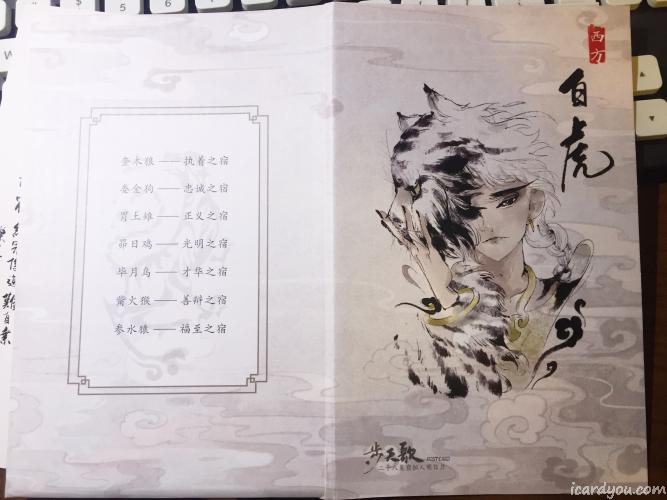 奎木狼——执着之宿
娄金狗——忠诚之宿
胃土雉——正义之宿
昴日鸡——光明之宿
毕月乌——才华之宿
觜火猴——善辩之宿
参水猿——福至之宿
西方
白虎
步天歌 POSTCARD
二十八星宿拟人明信片
icardyou.com